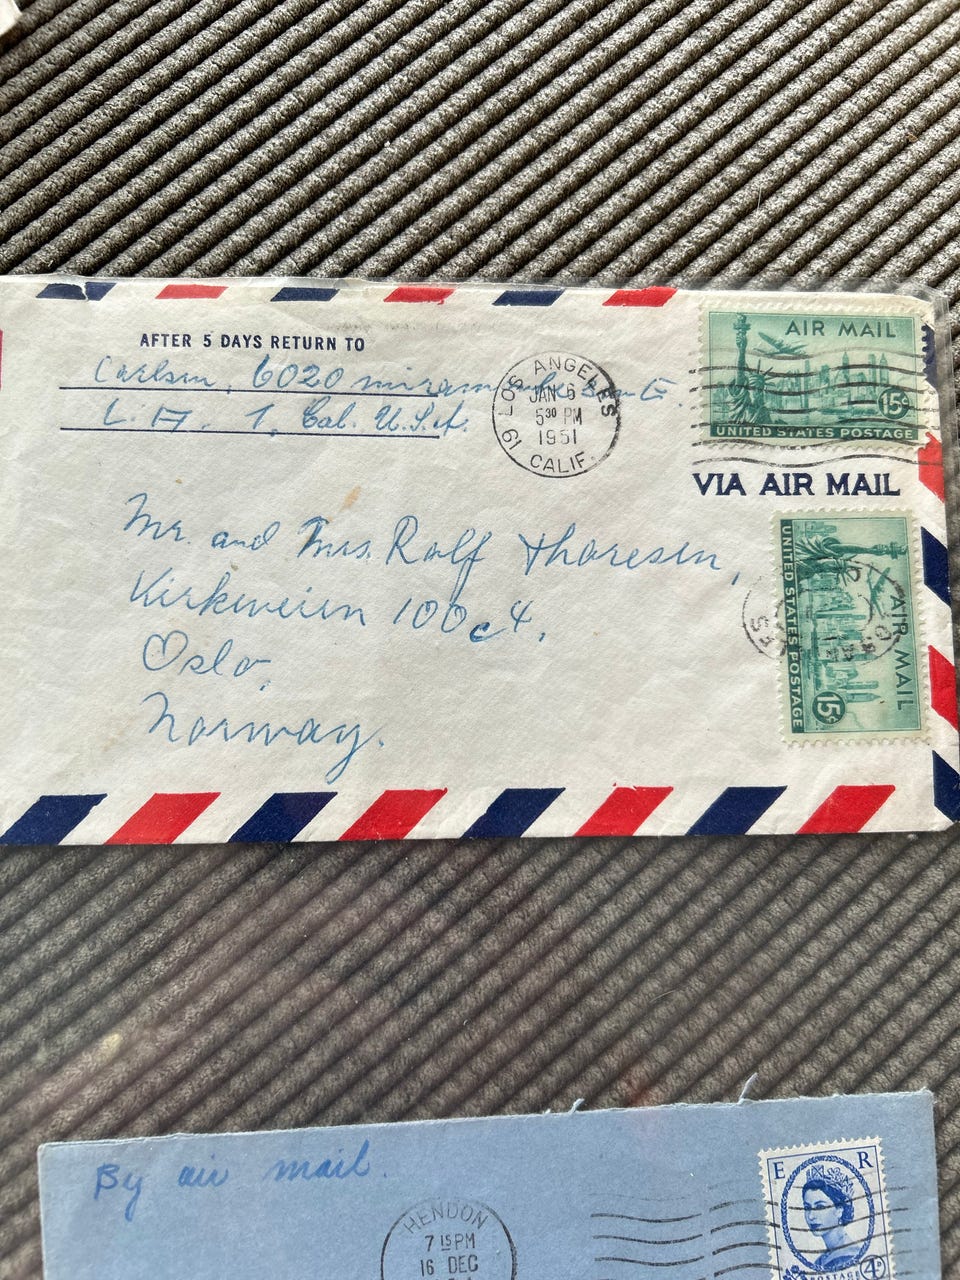 AFTER 5 DAYS RETURN TO
Carlsen, 6020
L.A. 1, Cal. U.S.A.
LOS ANGELES
19
JAN 6
5 30 PM
1951
CALIF.
AIR MAIL
15¢
UNITED STATES POSTAGE
VIA AIR MAIL
Mr. and Mrs. Rolf Thoresen,
Kirkeveien 100c4.
Oslo,
Norway.
UNITED STATES POSTAGE
AIR MAIL
15¢
By air mail.
HENDON
7 15 PM
16 DEC
E R
POSTAGE
4D